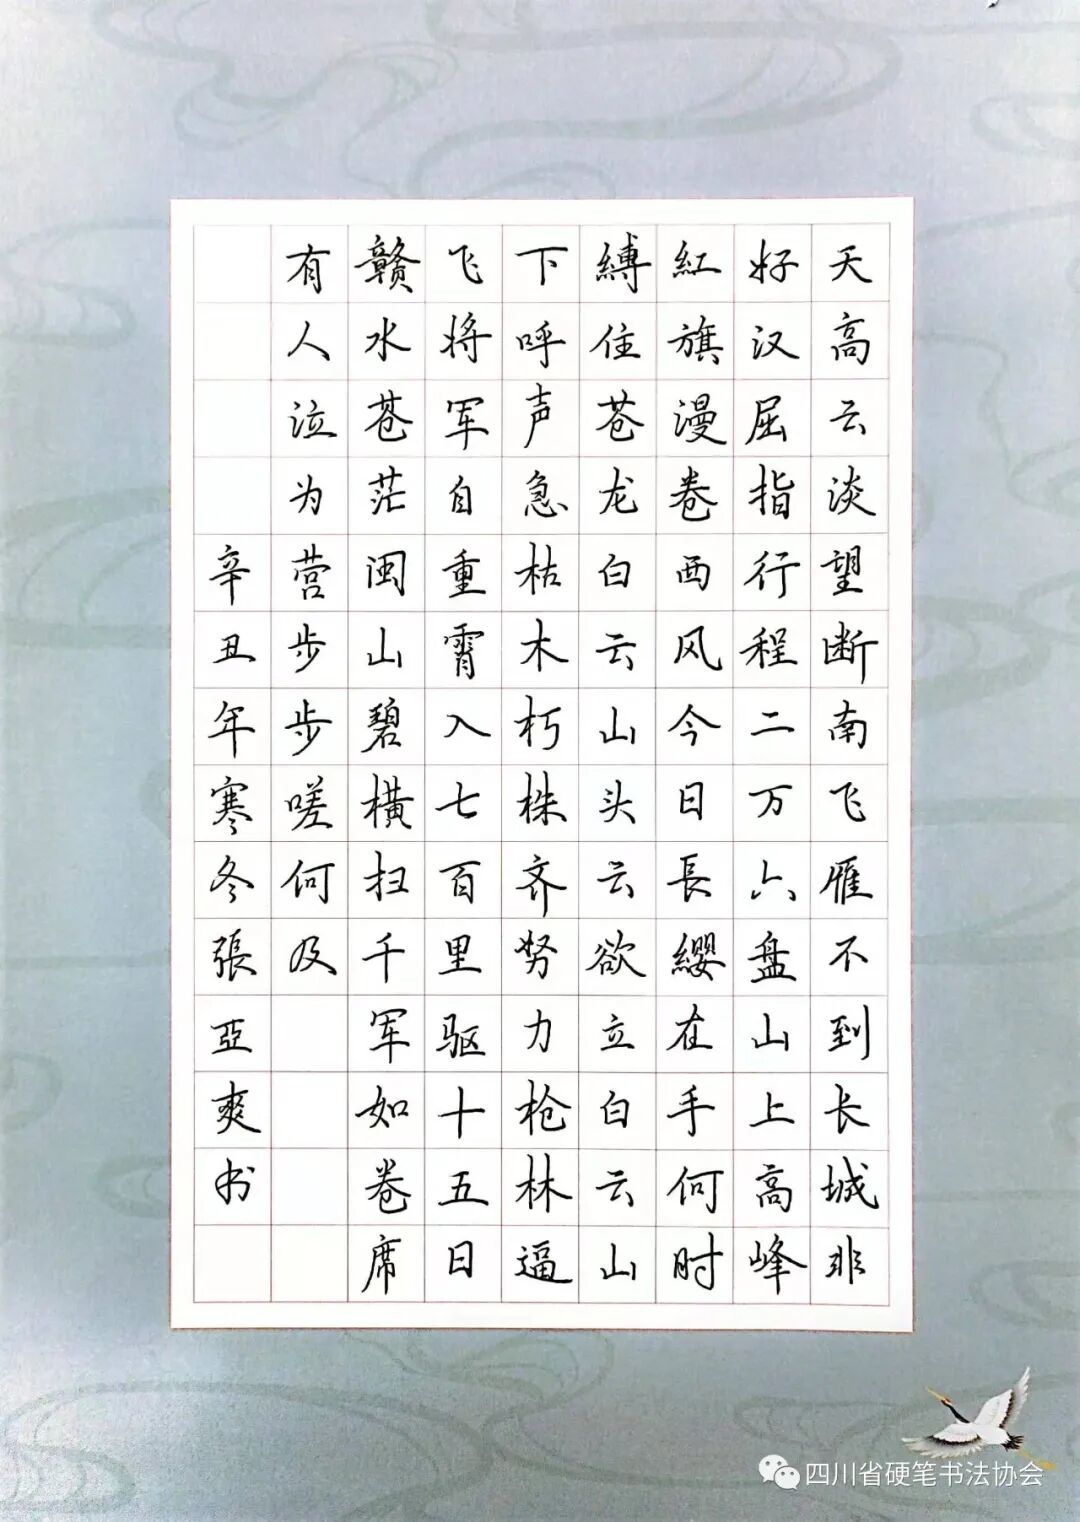 天高云淡望断南飞雁不到长城非
好汉屈指行程二万六盘山上高峰
紅旗漫卷西风今日長纓在手何时
縛住苍龙白云山头云欲立白云山
下呼声急枯木朽株齐努力枪林逼
飞将军自重霄入七百里驱十五日
赣水苍茫闽山碧横扫千军如卷席
有人泣为营步步嗟何及
辛丑年寒冬張亞爽书
四川省硬笔书法协会